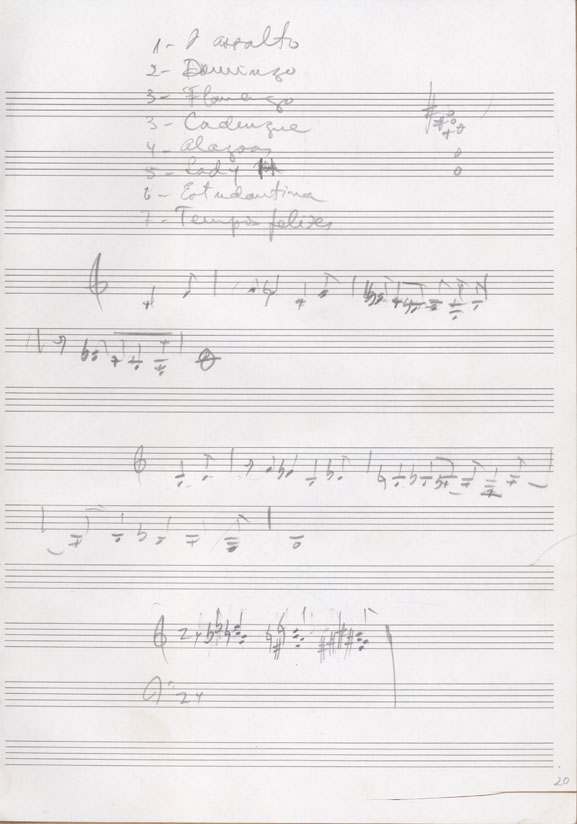 1- O assalto
2- Domingo
3- Flamengo
3- Cadenza
4- Alagoas
5- Lady
6- Estudantina
7- Tempos felizes
24
24
20